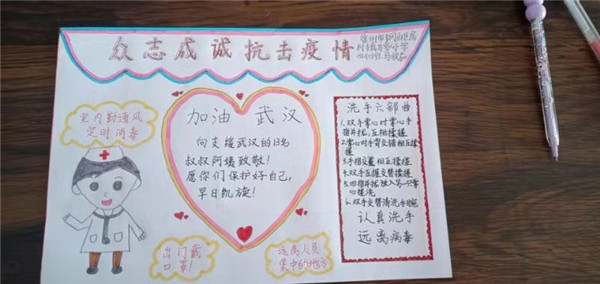 众志成诚抗击疫情
室内勤通风
定时消毒
加油 武汉
向支援武汉的
叔叔阿姨致敬!
愿你们保护好自己,
早日凯旋!
洗手六部曲
1.双手掌心对掌心手
指并拢,互相揉搓
2.掌心对手背交错相互揉
搓
3.手指交叉相互揉搓
4.双手互握交替揉搓
5.四指并拢放入另一只掌
心揉洗
6.双手交替清洗手腕
认真洗手
远离病毒
出门戴
口罩!
远离人员
集中的地方